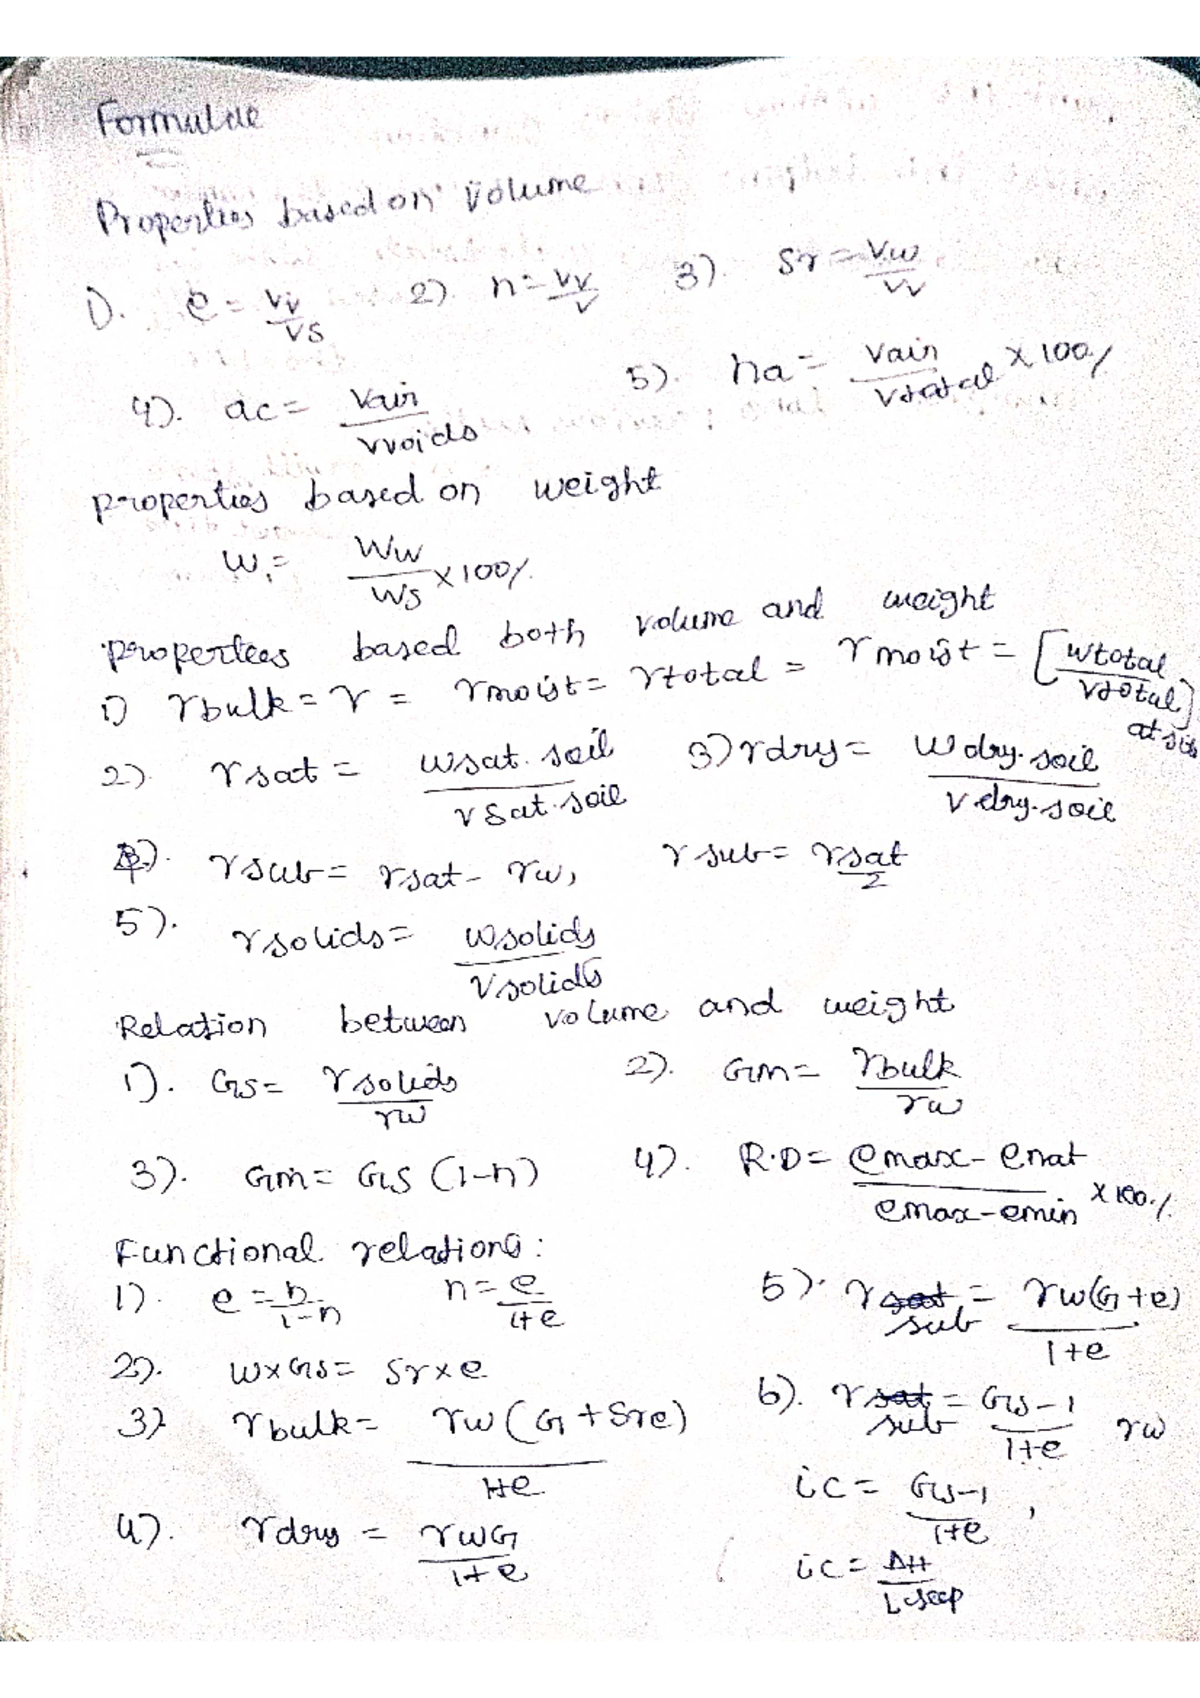 Formulae
Properties based on volume
1). e = Vv/Vs 2) n = Vv/V 3). Sr = Vw/Vv
4). ac = Vair/Vvoids 5). na = Vair/Vtotal × 100%
properties based on weight
w = Ww/Ws × 100%
properties based both volume and weight
1) γbulk = γ = γmoist = γtotal = γmoist = [Wtotal/Vtotal]
2). γsat = Wsat.soil/Vsat.soil 3) γdry = Wdry.soil/Vdry.soil
4). γsub = γsat - γw, γsub = γsat/2
5). γsolids = Wsolids/Vsolids
Relation between volume and weight
1). Gs = γsolids/γw 2). Gm = γbulk/γw
3). Gm = Gs (1-n) 4). R.D = emax - enat/emax - emin × 100%
Functional relations:
1). e = n/1-n n = e/1+e 5). γsub = γw(G+e)/1+e
2). w×Gs = Sr×e
3) γbulk = γw(G+Sre)/1+e 6). γsub = Gs-1/1+e γw
ic = Gs-1/1+e,
4). γdry = γwG/1+e ic = ΔH/Lseep